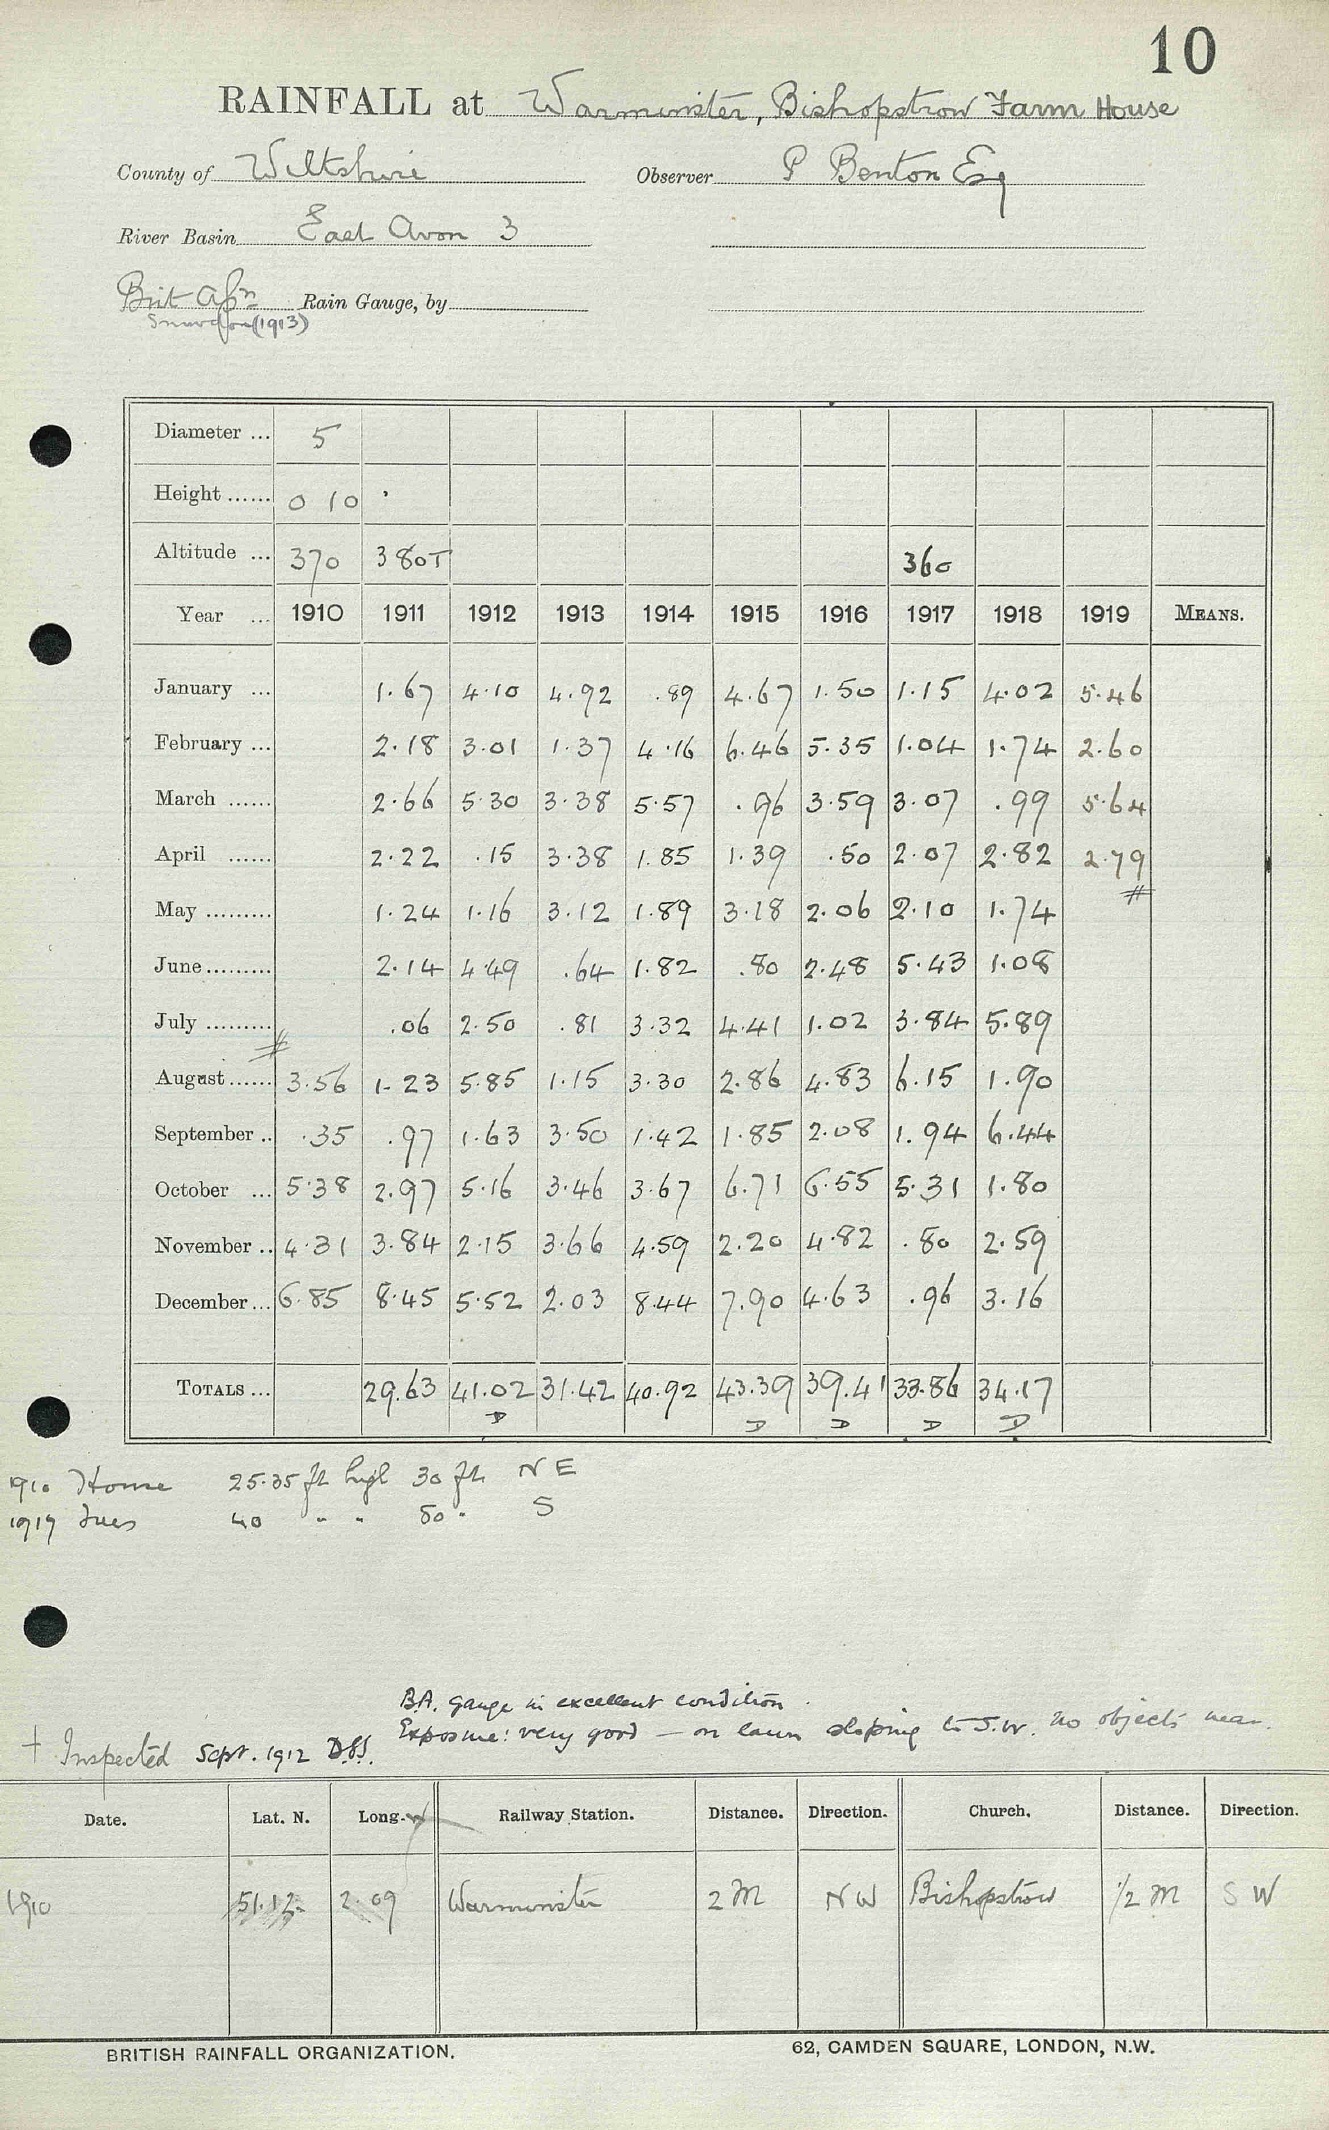 10
RAINFALL at Warminster, Bishopstrow Farm House
County of Wiltshire Observer P Benton Esq
River Basin East Avon 3
Brit Assn Rain Gauge, by
Snowdon (1913)
Diameter ... 5
Height ...... 0 10 "
Altitude ... 370 380T 360
Year ... 1910 1911 1912 1913 1914 1915 1916 1917 1918 1919 MEANS.
January ... 1.67 4.10 4.92 .89 4.67 1.50 1.15 4.02 5.46
February ... 2.18 3.01 1.37 4.16 6.46 5.35 1.04 1.74 2.60
March ...... 2.66 5.30 3.38 5.57 .96 3.59 3.07 .99 5.64
April ...... 2.22 .15 3.38 1.85 1.39 .50 2.07 2.82 2.79
May ......... 1.24 1.16 3.12 1.89 3.18 2.06 2.10 1.74
June ......... 2.14 4.49 .64 1.82 .80 2.48 5.43 1.08
July ......... .06 2.50 .81 3.32 4.41 1.02 3.84 5.89
August ...... 3.56 1.23 5.85 1.15 3.30 2.86 4.83 6.15 1.90
September .. .35 .97 1.63 3.50 1.42 1.85 2.08 1.94 6.44
October ... 5.38 2.97 5.16 3.46 3.67 6.71 6.55 5.31 1.80
November .. 4.31 3.84 2.15 3.66 4.59 2.20 4.82 .80 2.59
December ... 6.85 8.45 5.52 2.03 8.44 7.90 4.63 .96 3.16
TOTALS ... 29.63 41.02 31.42 40.92 43.39 39.41 33.86 34.17
D D D D D
1910 House 25.35 ft high 30 ft NE
1917 Trees 40 " " 80 " S
B.A. gauge in excellent condition.
Exposure: very good — on lawn sloping to S.W. No objects near.
† Inspected Sept. 1912
Date. Lat. N. Long. W Railway Station. Distance. Direction. Church. Distance. Direction.
1910 51.12 2.09 Warminster 2 M NW Bishopstrow 1/2 M SW
BRITISH RAINFALL ORGANIZATION. 62, CAMDEN SQUARE, LONDON, N.W.